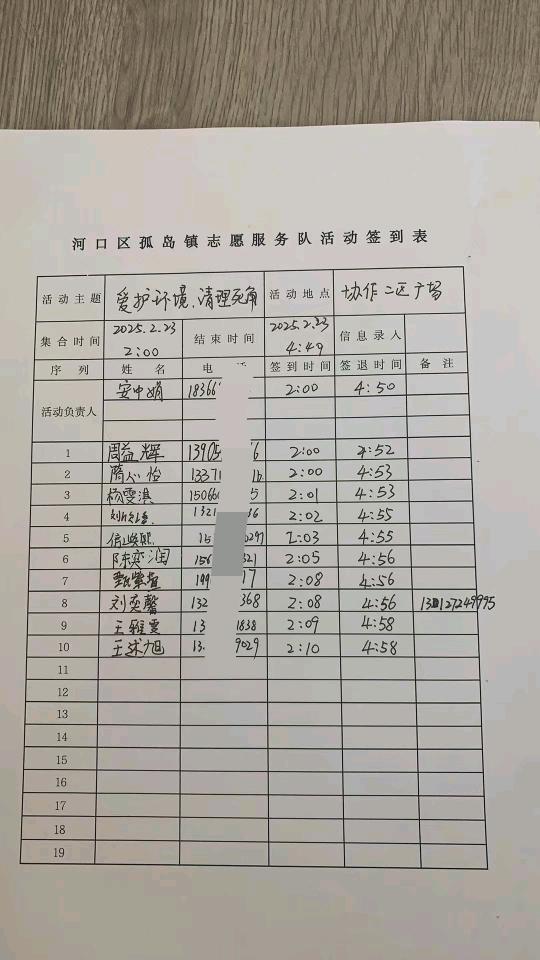 河口区孤岛镇志愿服务队活动签到表
活动主题 爱护环境、清理死角 活动地点 协作二区广场
集合时间 2025.2.23 2:00 结束时间 2025.2.23 4:49 信息录入
序列 姓名 电 签到时间 签退时间 备注
活动负责人 安中娟 1836 2:00 4:50
1 周益辉 1390 6 2:00 4:52
2 隋 怡 1337 2:00 4:53
3 杨雯淇 1506 5 2:01 4:53
4 1321 36 2:02 4:55
5 15 0297 2:03 4:55
6 陈奕润 156 321 2:05 4:56
7 199 17 2:08 4:56
8 刘奕馨 132 368 2:08 4:56
9 王雅雯 13 1838 2:09 4:58
10 王 旭 13. 9029 2:10 4:58
11
12
13
14
15
16
17
18
19